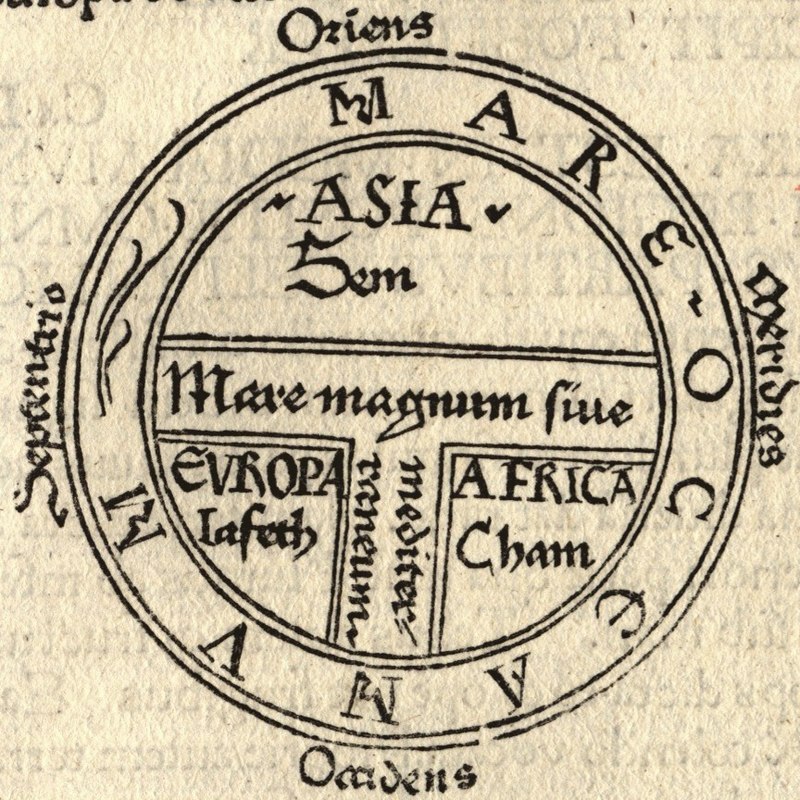 Oriens
MARE ~ OCEANVM
~ ASIA ~
Sem
Septentrio
Meridies
Mare magnum siue
mediter=
raneum.
EVROPA
Iafeth
AFRICA
Cham
Occidens